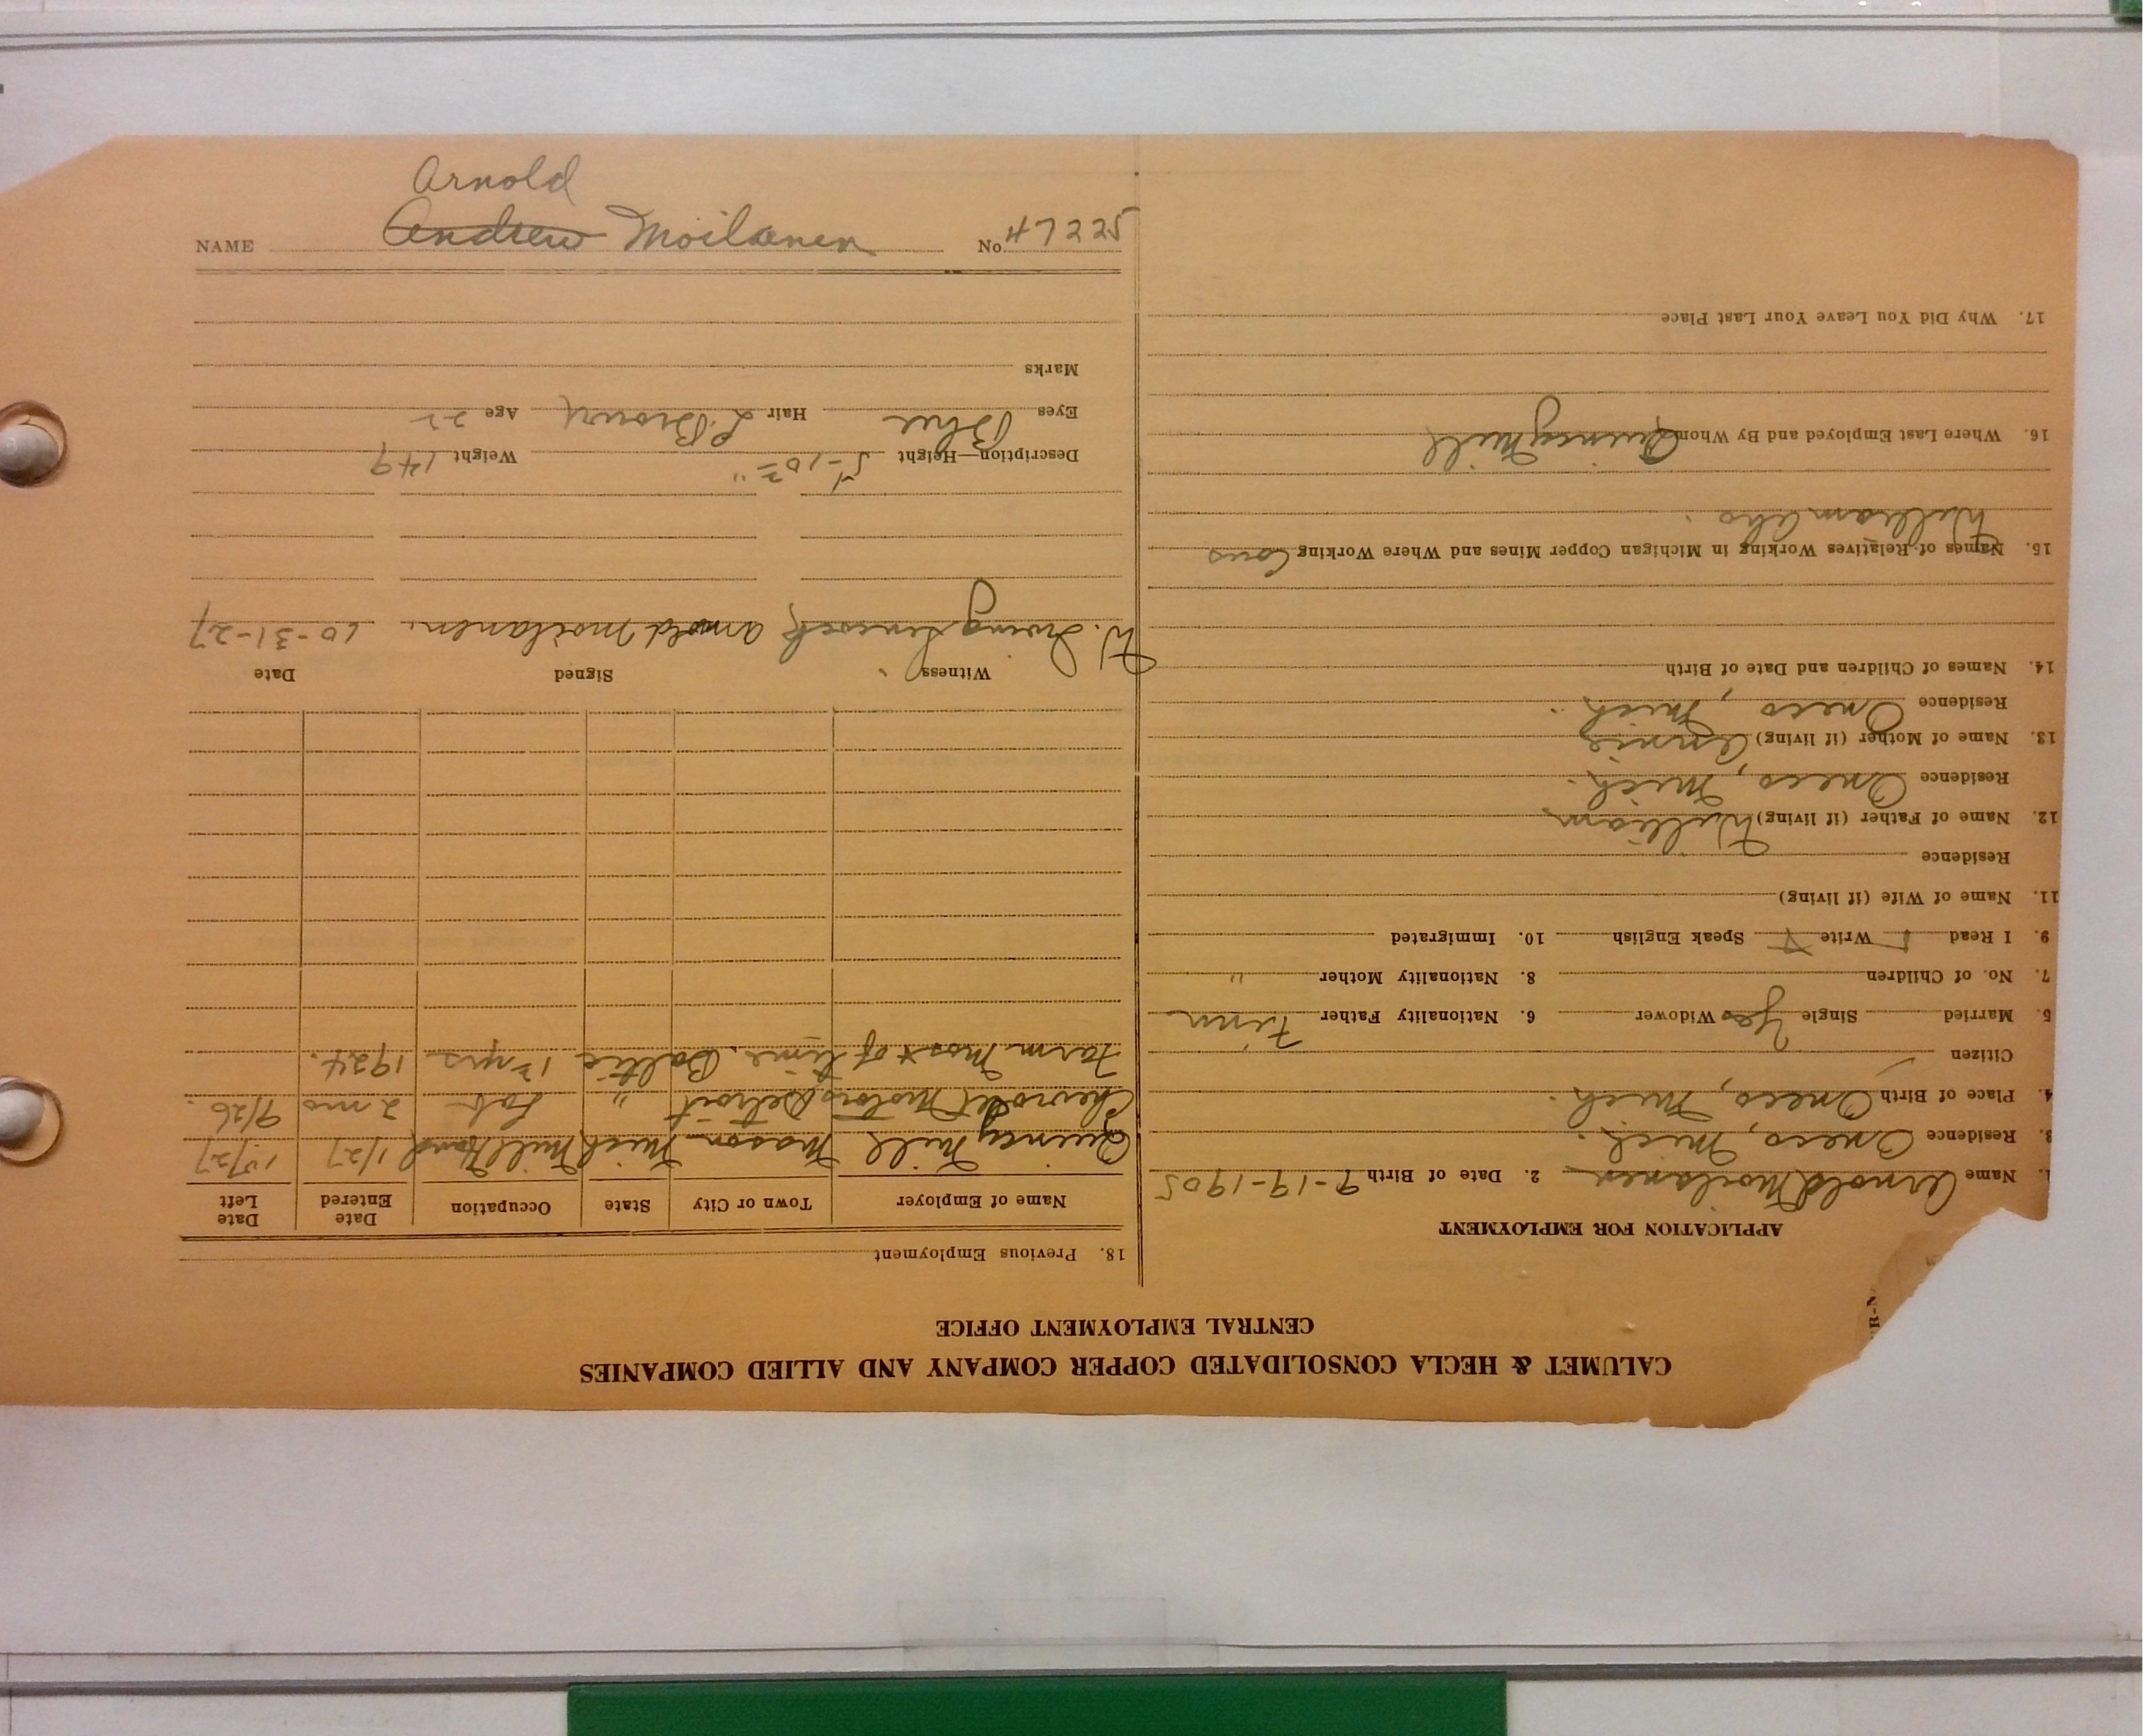 CALUMET & HECLA CONSOLIDATED COPPER COMPANY AND ALLIED COMPANIES
CENTRAL EMPLOYMENT OFFICE
APPLICATION FOR EMPLOYMENT
1. Name Arnold Moilanen 2. Date of Birth 9-19-1905
3. Residence Oneco, Mich.
4. Place of Birth Oneco, Mich.
Citizen
5. Married Single Yes Widower 6. Nationality Father Finn
7. No. of Children 8. Nationality Mother "
9. I Read Write Speak English 10. Immigrated
11. Name of Wife (if living)
Residence
12. Name of Father (if living) William
Residence Oneco, Mich.
13. Name of Mother (if living) Annie
Residence Oneco, Mich.
14. Names of Children and Date of Birth
15. Names of Relatives Working in Michigan Copper Mines and Where Working Cous
William Aho.
16. Where Last Employed and By Whom Quincy Mill
17. Why Did You Leave Your Last Place
18. Previous Employment
Name of Employer Town or City State Occupation Date Entered Date Left
Quincy Mill Mason Mich Mill Hand 1/27 10/27
Chevrolet Motors Detroit " Lab 2 mo 9/26.
Farm Most of time. Baltic 1½ yrs 1924.
Witness Signed Date
W. Irving Arnold Moilanen. 10-31-27
Description—Height 5'-10½" Weight 149
Eyes Blue Hair L. Brown Age 22
Marks
Arnold
NAME Andrew Moilanen No. 47225